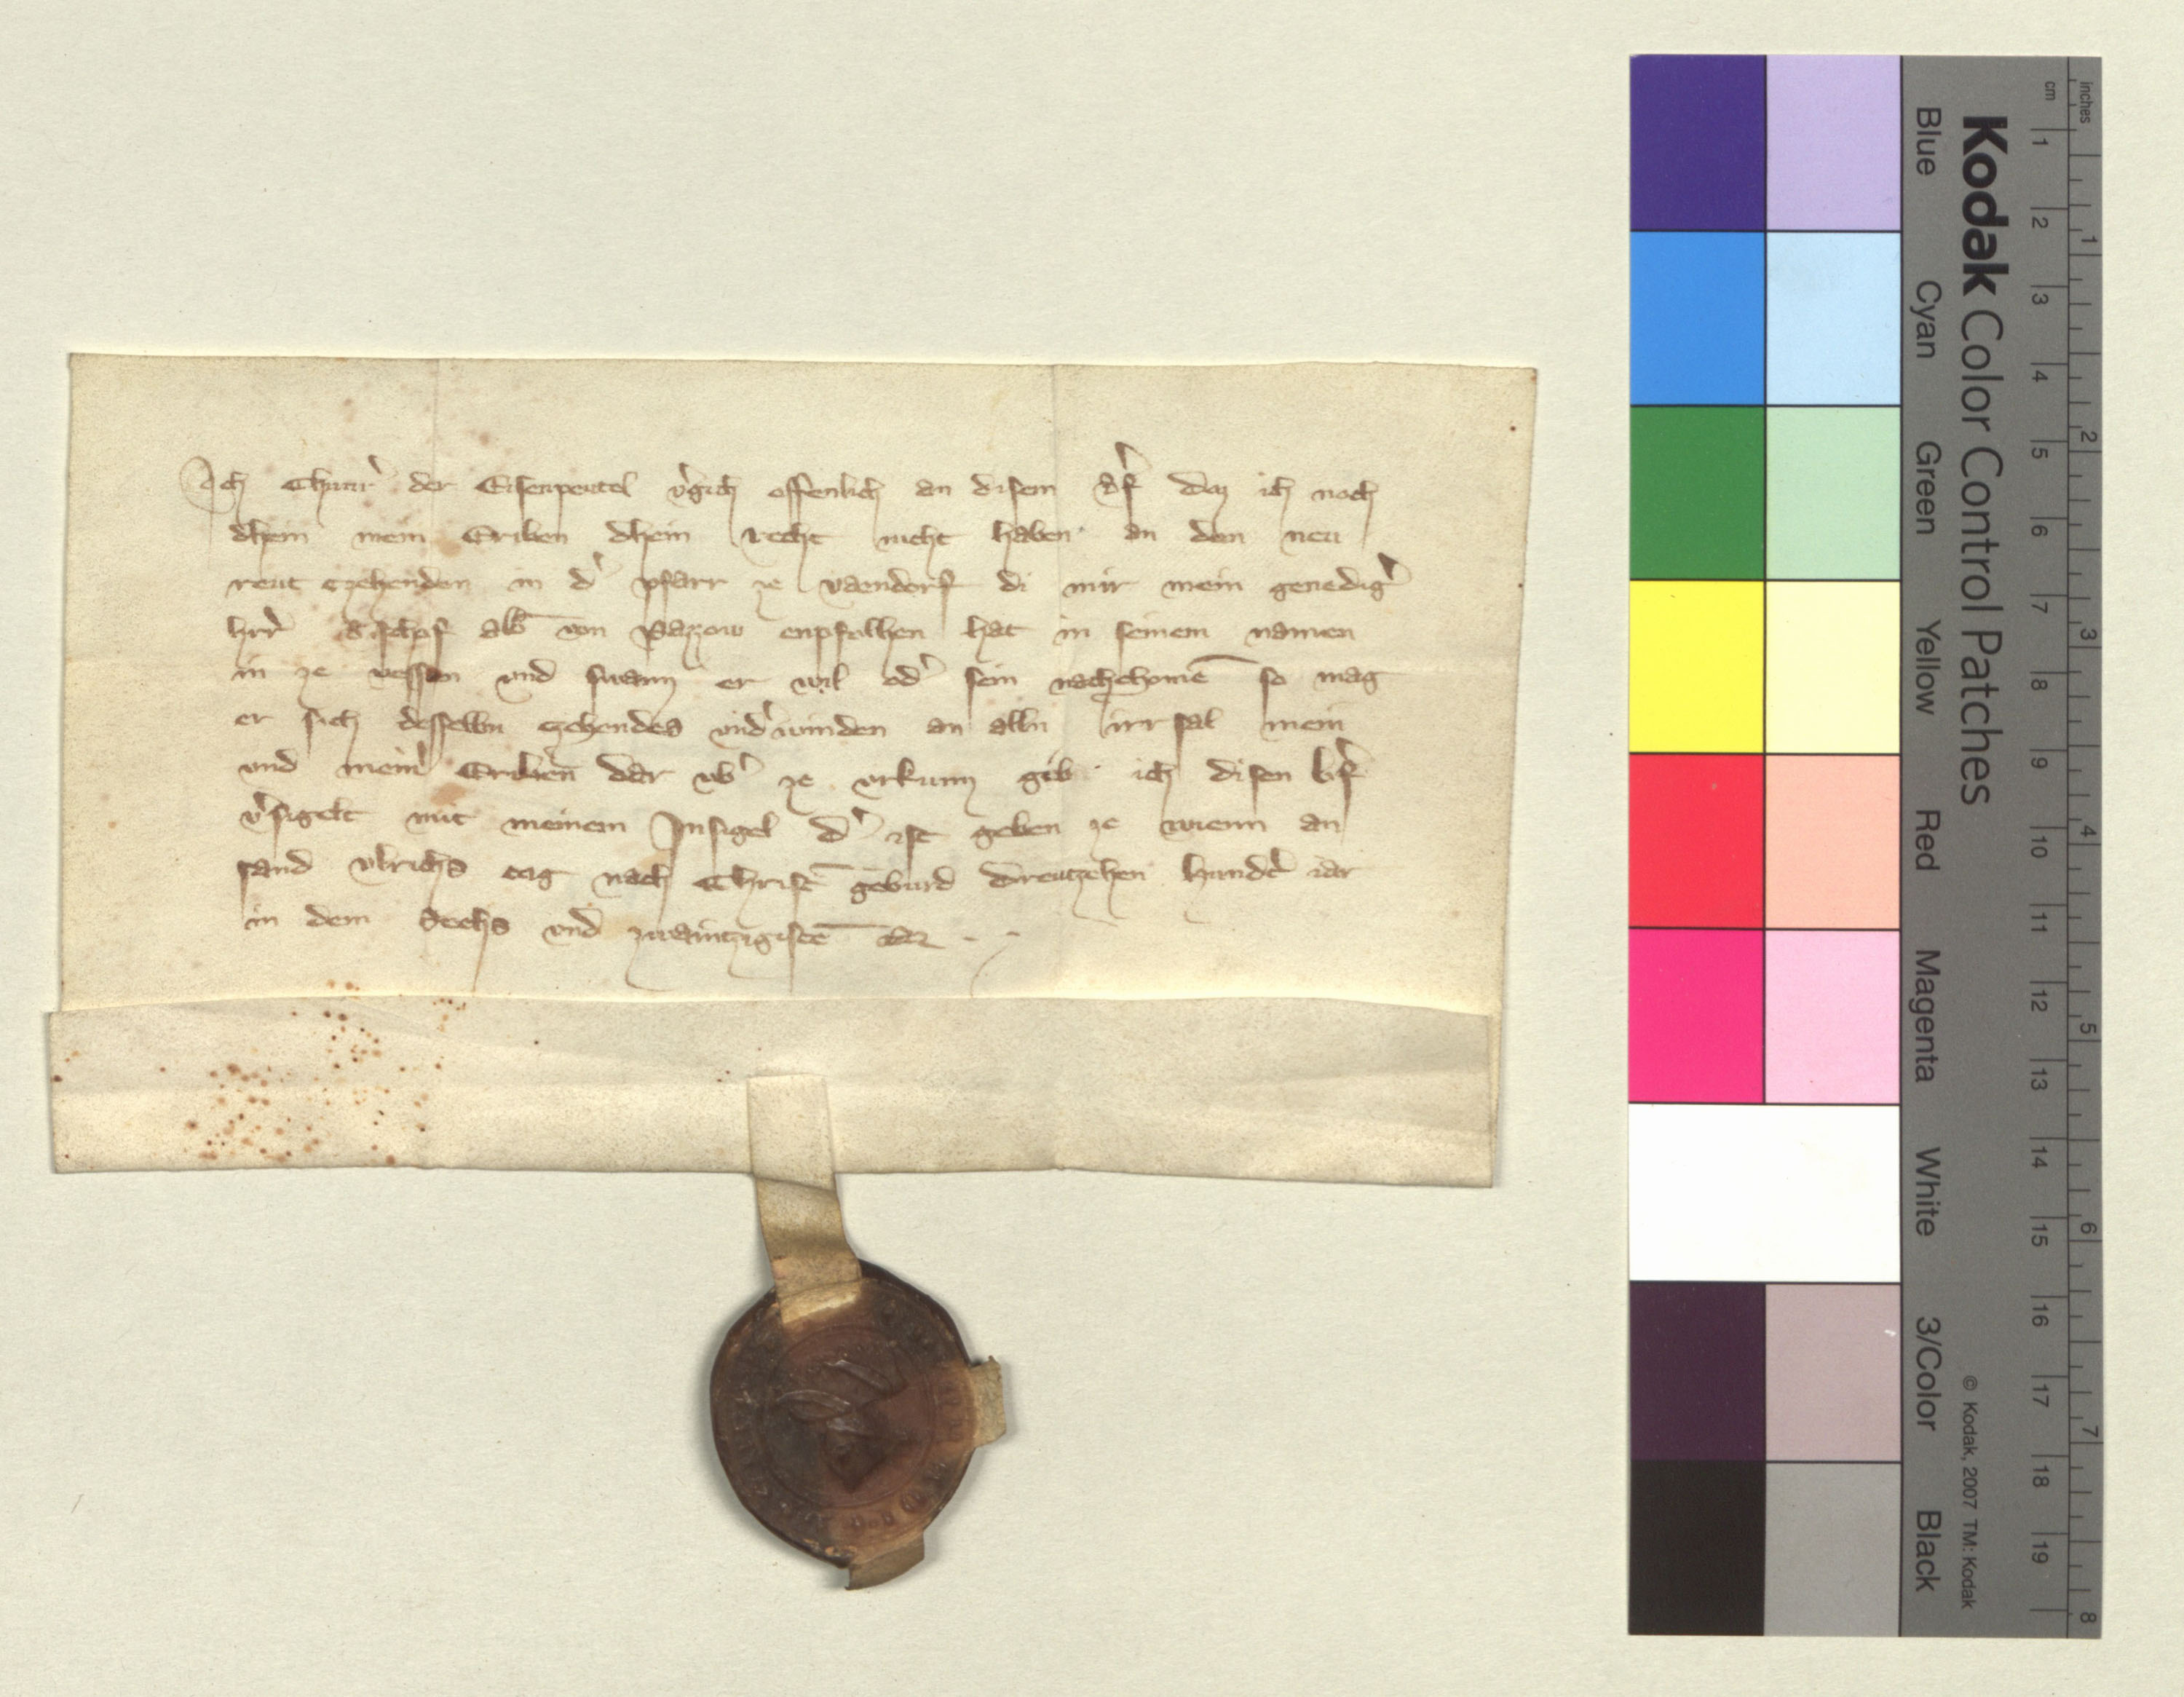 Ich Chunr᷎ der Eisenpeutel v᷎gich offenlich an disem b᷎f daz ich noch
dhein mein Eriben dhein recht nicht haben an den neu
reut czehenden in d᷎ pfarr ze vaendorf di mir mein genedig᷎
hrr᷎ Bischof alb̄ von Pazzow enpfolhen hat in seinem namen
in ze vessen vnd swann er wil od᷎ sein nachchomē so mag
er sich desselbn czehendes vnd᷎winden an alln irrsal mein
vnd mein᷎ Eriben dar vb᷎ ze vrkunn gib ich disen b᷎f
v᷎sigelt mit meinem Insigel d᷎ ist geben ze wienn an
sand vlrichs tag nach Christ̄ geburd dreutzehen hund᷎t iar
in dem Sechs vnd zwaintzgistē
Kodak Color Control Patches
Blue Cyan Green Yellow Red Magenta White 3/Color Black
© Kodak, 2007 TM: Kodak
cm 1 2 3 4 5 6 7 8 9 10 11 12 13 14 15 16 17 18 19
inches 1 2 3 4 5 6 7 8